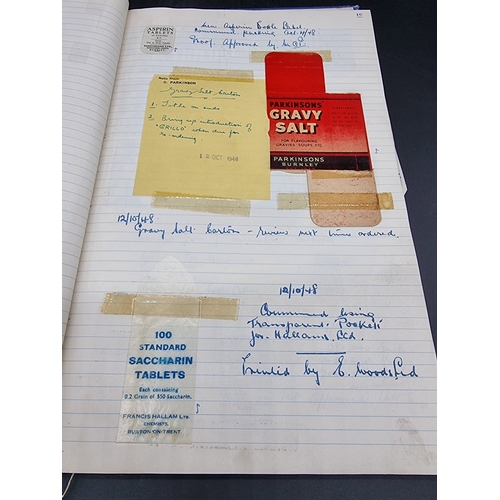 10
ASPIRIN
TABLETS
New Aspirin Bottle Label.
Commenced packing Oct. 11/48
Proof Approved by
Note from
C. PARKINSON
Gravy Salt Carton
1. Title on ends
2. Bring up introduction of
"GRILLO" when due for
re-ordering.
12 OCT 1948
PARKINSONS
GRAVY
SALT
FOR FLAVOURING
GRAVIES SOUPS ETC
PARKINSONS
BURNLEY
12/10/48
Gravy Salt Carton – review next time ordered.
12/10/48
Commenced using
Transparent Pockets
for Hallams Ltd.
Printed by E. Woods Ltd
100
STANDARD
SACCHARIN
TABLETS
Each containing
0.2 Grain of 550 Saccharin.
FRANCIS HALLAM LTD.
CHEMISTS,
BURTON-ON-TRENT.